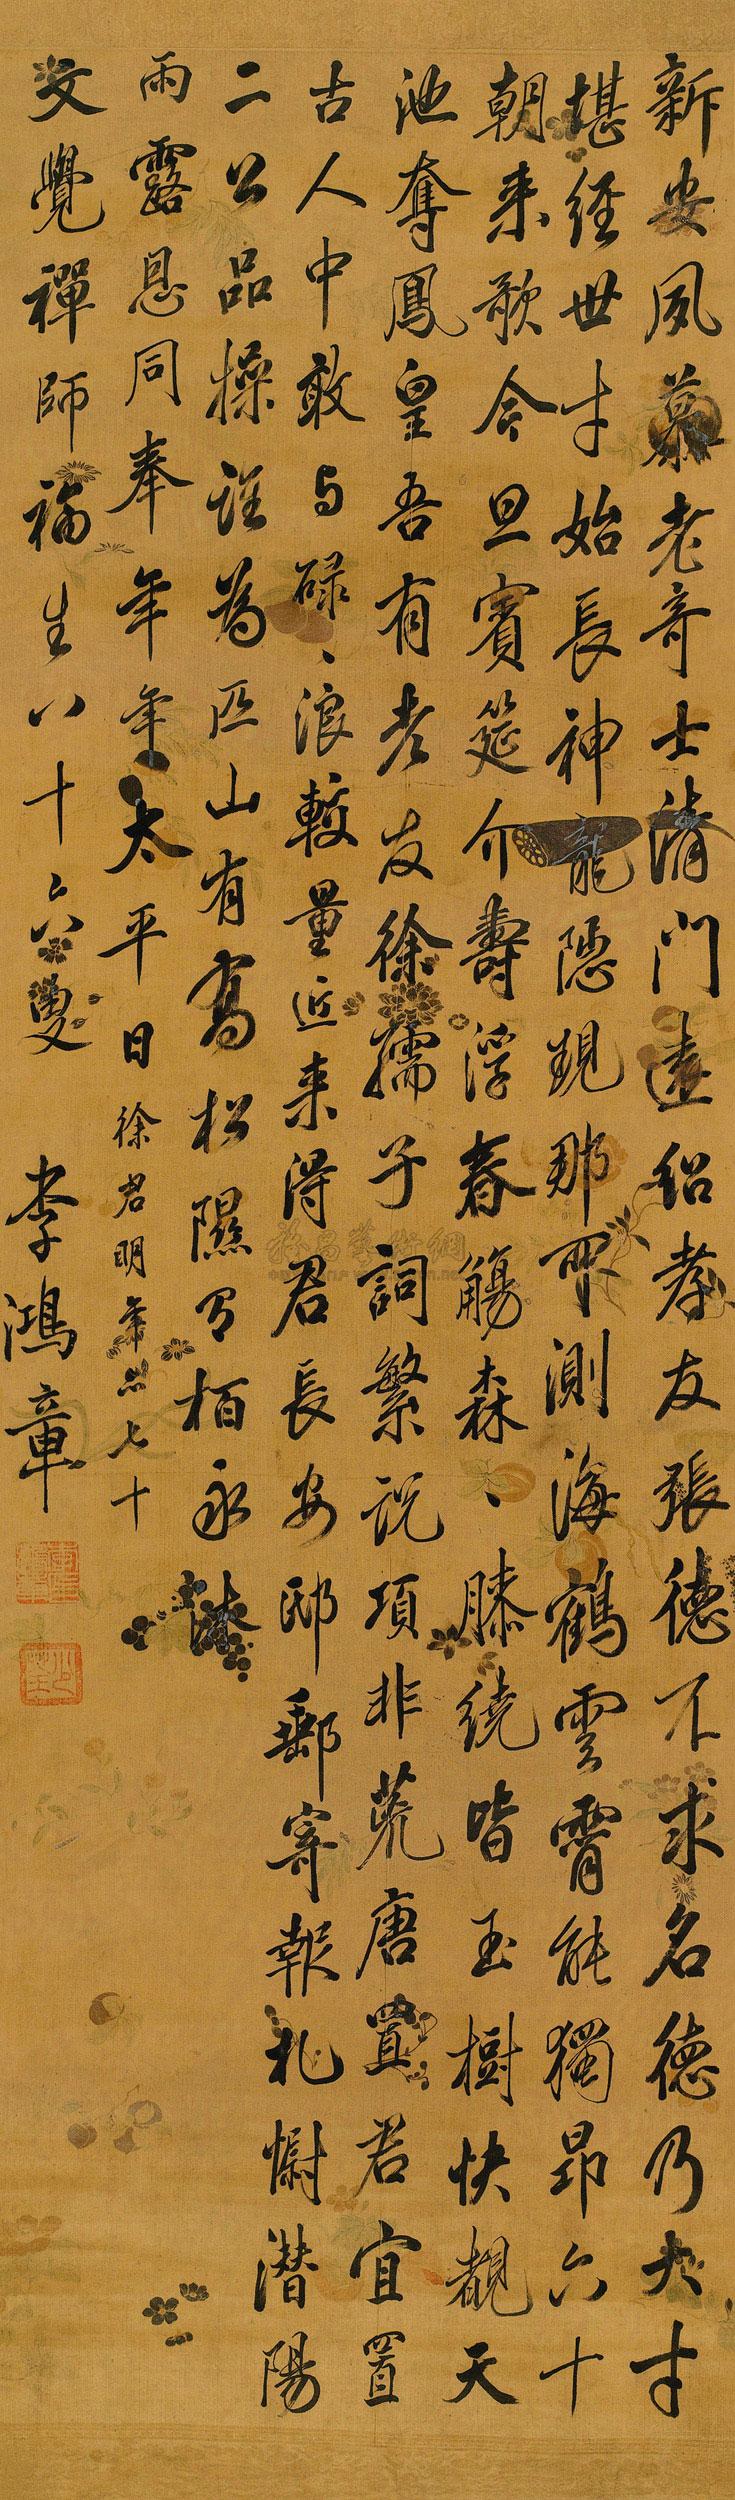 新安夙慕老奇士清門遠紹孝友張德不求名德乃大才
堪經世才始長神龍隱現那可測海鶴雲霄能獨昂六十
朝來歌令旦賓筵介壽浮春觴森森膝繞皆玉樹快覩天
池奪鳳皇吾有老友徐孺子詞繁說項非荒唐置君宜置
古人中敢与碌碌浪較量近來得君長安邸郵寄報札慰潛陽
二公品操誰為匹山有喬松隰有柏永漆
雨露恩同奉年年太平日徐君明年亦七十
文覺禪師福生八十六叟 李鴻章